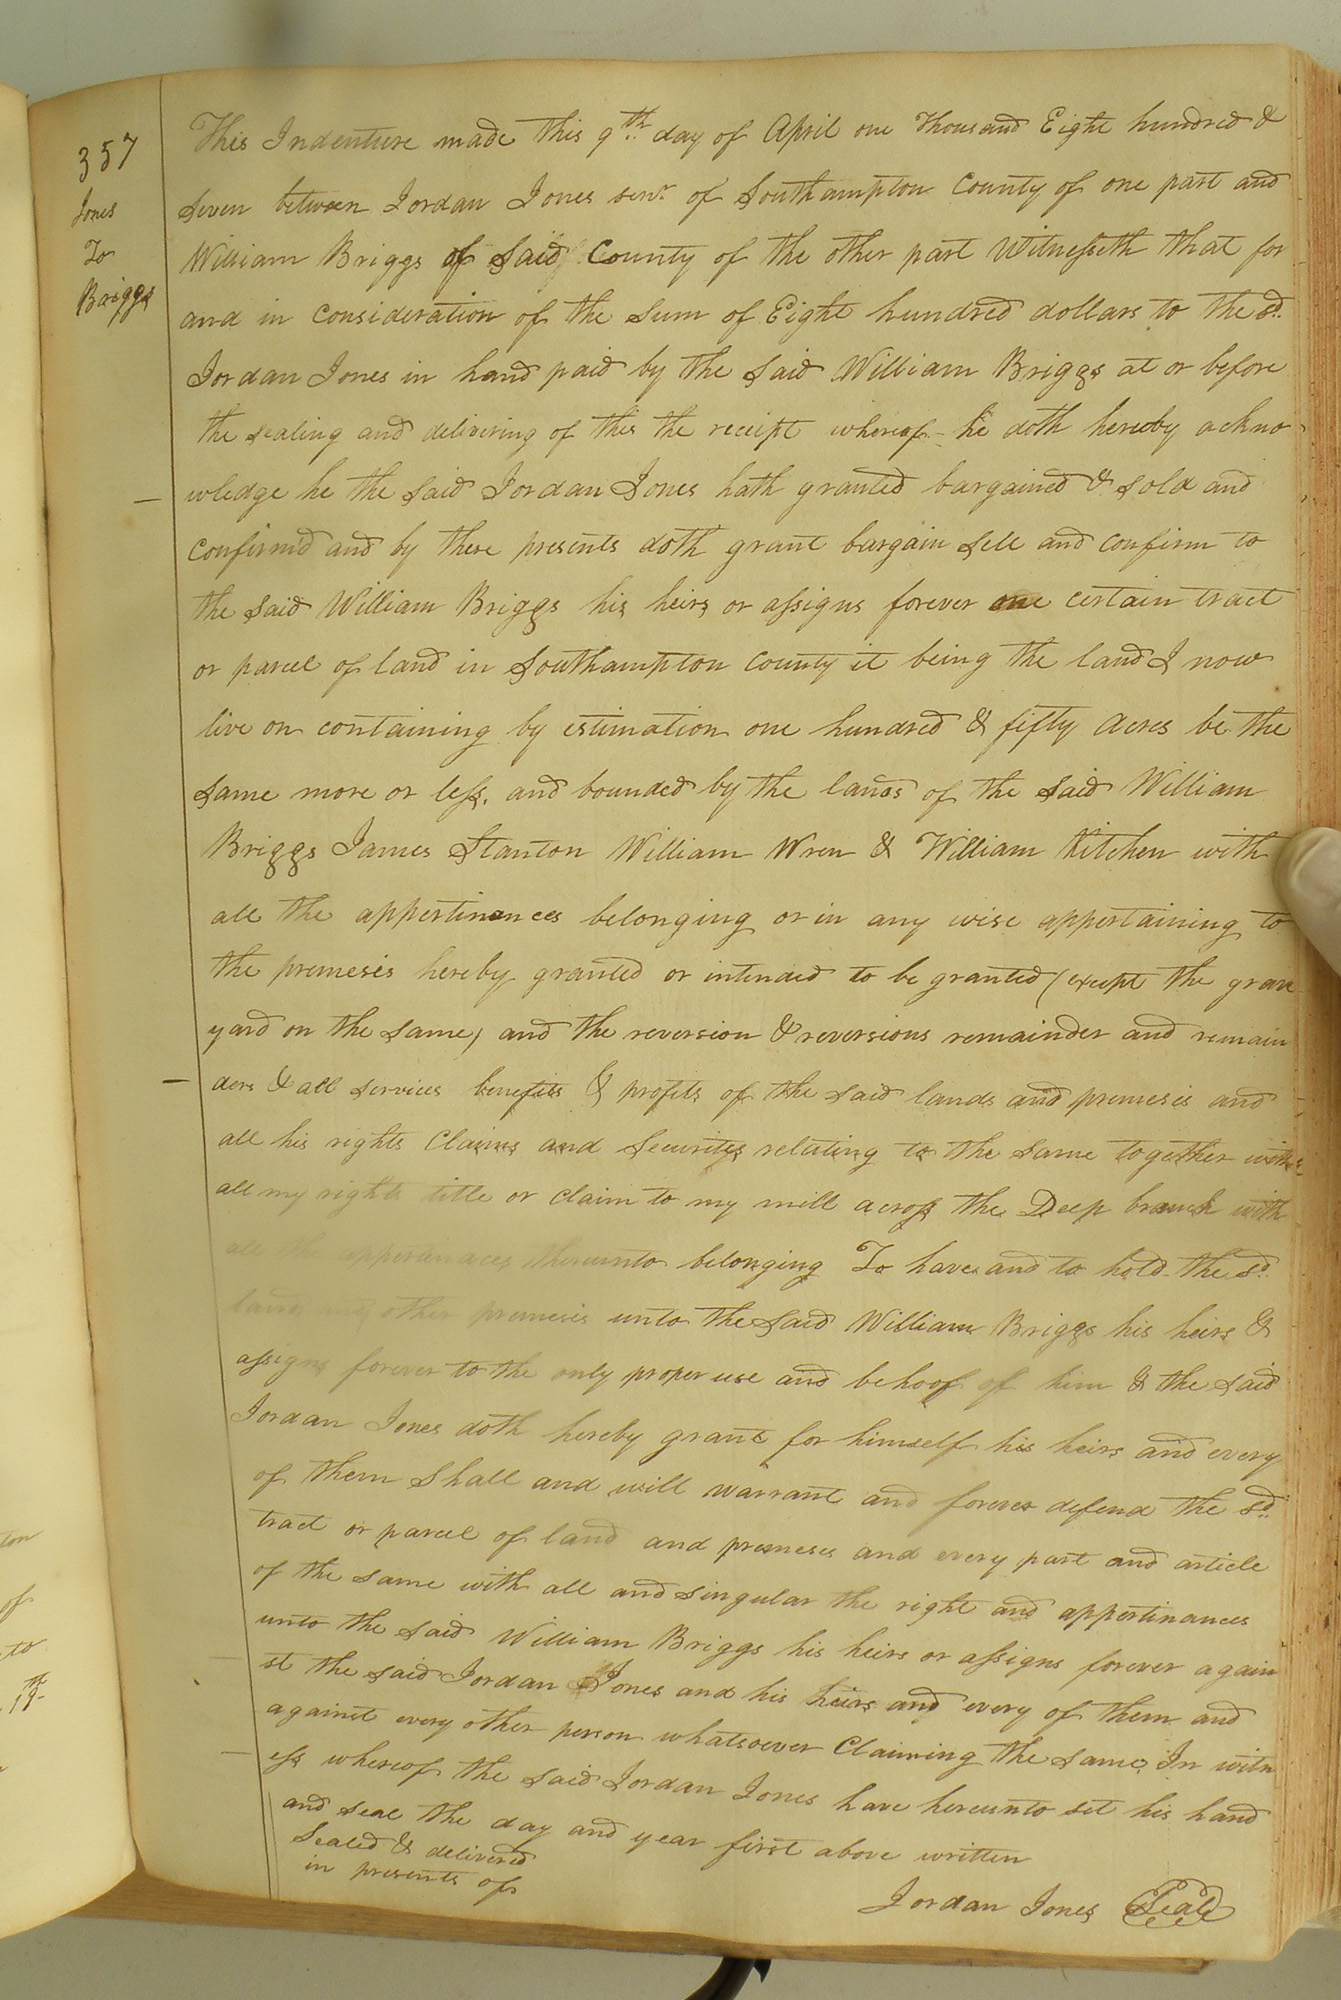 357
Jones
To
Briggs
This Indenture made this 9th day of April one Thousand Eight hundred &
seven between Jordan Jones senr. of Southampton County of one part and
William Briggs of said County of the other part Witnesseth that for
and in consideration of the sum of Eight hundred dollars to the sd.
Jordan Jones in hand paid by the said William Briggs at or before
the sealing and delivering of this the receipt whereof he doth hereby ackno
wledge he the said Jordan Jones hath granted bargained & sold and
confirm'd and by these presents doth grant bargain sell and confirm to
the said William Briggs his heirs or assigns forever one certain tract
or parcel of land in Southampton County it being the land I now
live on containing by estimation one hundred & fifty acres be the
same more or less, and bounded by the lands of the said William
Briggs James Stanton William Wren & William Kitchen with
all the appertinances belonging or in any wise appertaining to
the premesis hereby granted or intended to be granted (except the grave
yard on the same) and the reversion & reversions remainder and remain
ders & all services benefits & profits of the said lands and premesis and
all his rights Claims and Securitys relating to the same together with
all my rights title or claim to my mill across the Deep branch with
all the appertinances thereunto belonging To have and to hold the sd.
land and other premesis unto the said William Briggs his heirs &
assigns forever to the only proper use and behoof of him & the said
Jordan Jones doth hereby grant for himself his heirs and every
of them shall and will warrant and forever defend the sd.
tract or parcel of land and premeses and every part and article
of the same with all and singular the right and appertinances
unto the said William Briggs his heirs or assigns forever again
st the said Jordan Jones and his heirs and every of them and
against every other person whatsoever Claiming the same In witn
ess whereof the said Jordan Jones have hereunto set his hand
and seal the day and year first above written
Sealed & delivered
in presents of
Jordan Jones Seal
ton
of
to
19th